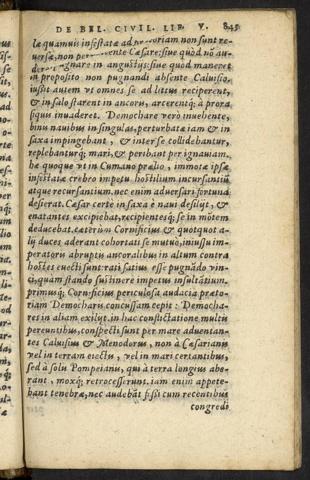 DE BEL. CIVIL. LIB. V. 845
læ quamuis infestatæ ad non sunt re-
uersæ, non Cæsare: siue quòd nõ au-
gnare in angustijs: siue quòd maneret
in proposito non pugnandi absente Caluisio,
iussit autem vt omnes se ad littus reciperent,
& in salo starent in ancoris, arcerentq; à prora
siquis inuaderet. Demochare verò inuehente,
binis nauibus in singulas, perturbatæ iam & in
saxa impingebant, & inter se collidebantur,
replebanturq; mari, & peribant per ignauiam,
hæ quoque vt in Cumano prælio, immotæ ipsæ
infestatæ crebro impetu hostilium incursantiũ
atque recursantium, nec enim aduersari fortuna
desierat. Cæsar certè in saxa è naui desilijt, &
enatantes excipiebat, recipientesq; se in mõtem
deducebat. cæterùm Cornificius & quotquot a-
lij duces aderant cohortati se mutuò, iniussu im-
peratoris abruptis ancoralibus in altum contra
hostes euecti sunt: rati satius esse pugnãdo vin-
ci, quàm stando sustinere impetus insultãtium.
primusq; Cornificius periculosa audacia præto-
riam Democharis concussam cepit: Democha-
res in aliam exilijt. in hac conflictatione multis
pereuntibus, conspecti sunt per mare aduentan-
tes Caluisius & Menodorus, non à Cæsarianis
vel in terram eiectis, vel in mari certantibus,
sed à solis Pompeianis, qui à terra longius abe-
rant, moxq; retrocesserunt. iam enim appete-
bant tenebræ, nec audebãt fessi cum recentibus
congredi